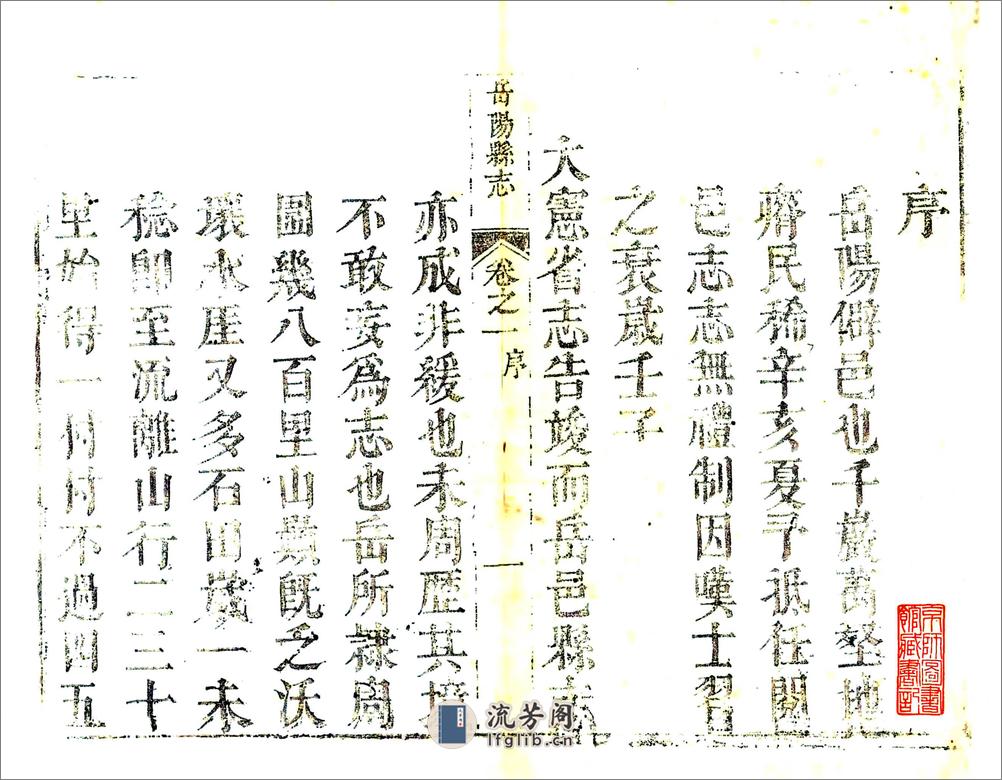 序
岳陽僻邑也千巖萬壑地
瘠民稀辛亥夏予祗任閱
邑志志無禮制因嘆士習
之衰歲壬子
大憲省志告竣而岳邑縣志
岳陽縣志 卷之一 序 一
亦成非緩也未周歷其境
不敢妄為志也岳所隸周
圖幾八百里山類旣乏沃
壤水厓又多石田歲一未
稔卽至流離山行二三十
里始得一付付不過四五
京師圖書館藏書記
流芳阁
lfglib.cn